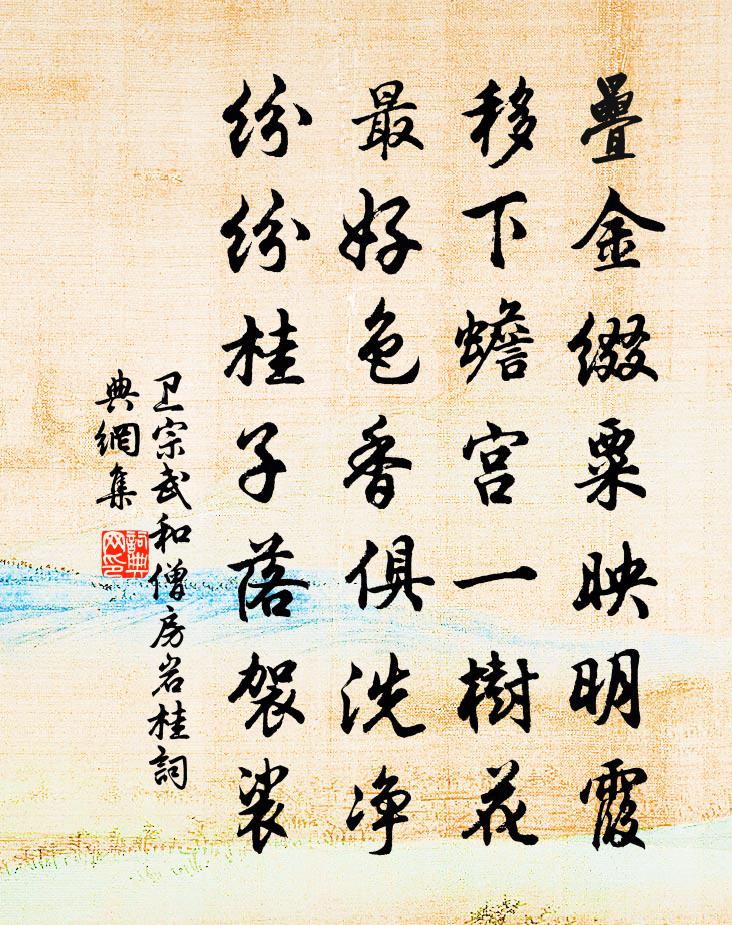 疊金綴粟映明霞
移下蟾宮一樹花
最好色香俱洗净
纷纷桂子落袈裟
卫宗武和僧房岩桂詞
典網集
詞典
网印